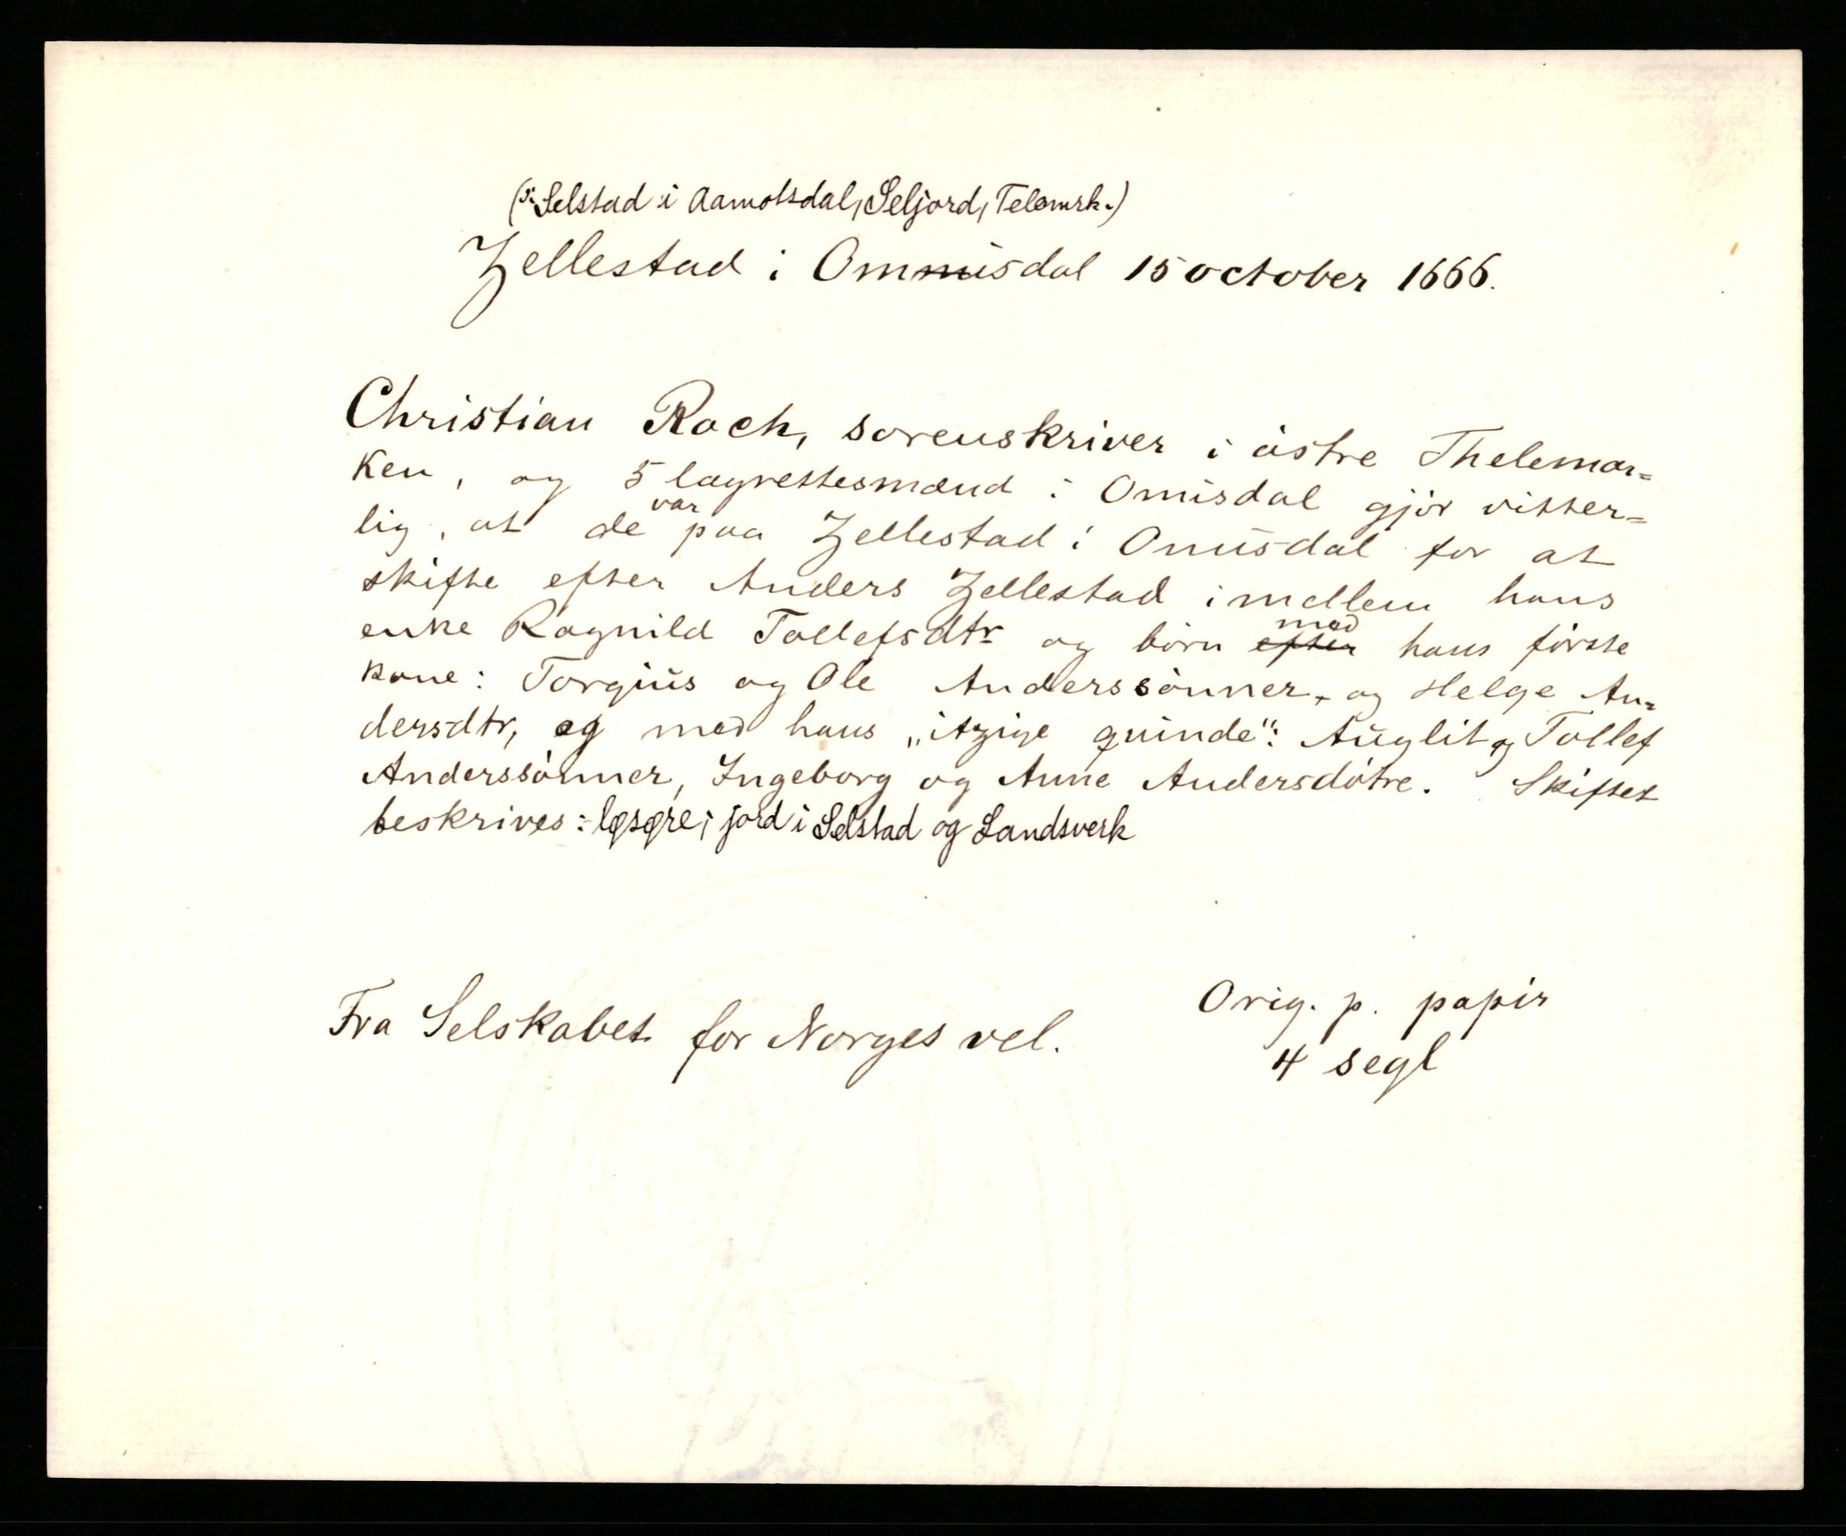 (ɔ: Selstad i Aamotsdal, Seljord, Telemrk.)
Zellestad i Ommisdal 15 october 1666.
Christian Roch, sorenskriver i östre Thelemar=
ken, og 5 lagrettesmænd i Omisdal gjör vitter=
lig, at de var paa Zellestad i Omisdal for at
skifte efter Anders Zellestad imellem hans
enke Ragnild Tollefsdtr og börn efter med hans förste
kone: Torgius og Ole Anderssönner, og Helge An=
dersdtr, og med hans „itzige quinde": Auglit og Tollef
Anderssönner, Ingeborg og Anne Andersdötre. Skiftet
beskrives: løsøre; jord i Selstad og Landsverk
Fra Selskabet for Norges vel.
Orig. p. papir
4 segl